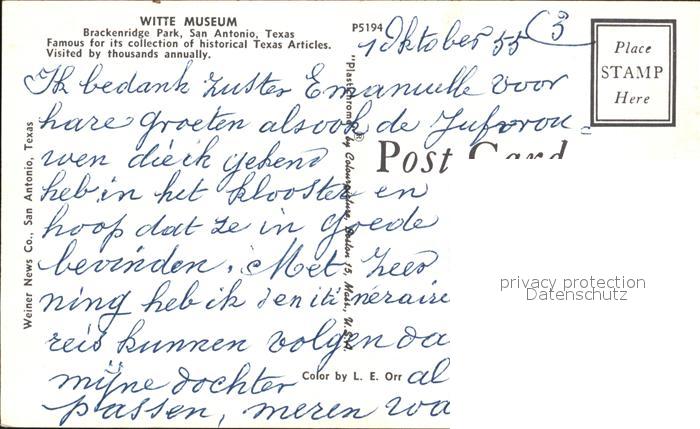 WITTE MUSEUM
Brackenridge Park, San Antonio, Texas
Famous for its collection of historical Texas Articles.
Visited by thousands annually.
P5194
1 Oktober 55
3
Place
STAMP
Here
Ik bedank zuster Emanuelle voor
hare groeten alsook de Jufvrou=
wen die ik gekend
heb in het klooster en
hoop dat ze in goede
bevinden. Met
ning heb ik den itinéraire
reis kunnen volgen da
mijne dochter al
passen, meren wa
Post Card
Weiner News Co., San Antonio, Texas
"Plastichrome"® by Colourpicture, Boston 15, Mass., U.S.A.
Color by L. E. Orr
privacy protection
Datenschutz